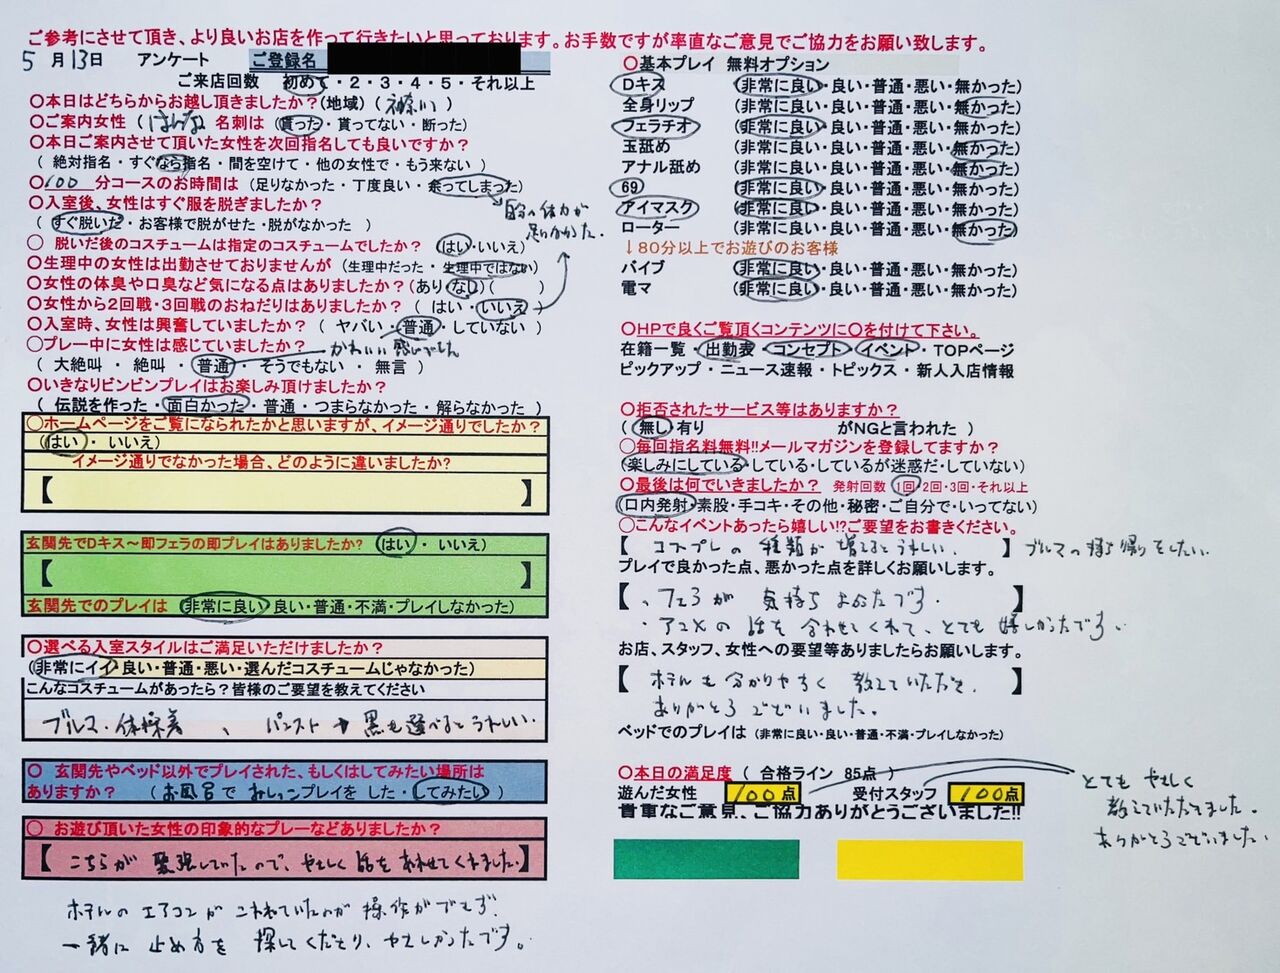 ご参考にさせて頂き、より良いお店を作って行きたいと思っております。お手数ですが率直なご意見でご協力をお願い致します。
5月13日 アンケート ご登録名
ご来店回数 初めて・2・3・4・5・それ以上
〇本日はどちらからお越し頂きましたか?(地域)( 神奈川 )
〇ご案内女性 ( はんな 名刺は (貰った・貰ってない・断った)
〇本日ご案内させて頂いた女性を次回指名しても良いですか?
( 絶対指名・すぐなら指名・間を空けて・他の女性で・もう来ない )
〇100分コースのお時間は (足りなかった・丁度良い・余ってしまった)
自分の体力が
足りなかった.
〇入室後、女性はすぐ服を脱ぎましたか?
( すぐ脱いだ・お客様で脱がせた・脱がなかった )
〇 脱いだ後のコスチュームは指定のコスチュームでしたか? (はい・いいえ)
〇生理中の女性は出勤させておりませんが (生理中だった・生理中ではない)
〇女性の体臭や口臭など気になる点はありましたか?(あり・なし)( )
〇女性から2回戦・3回戦のおねだりはありましたか? ( はい・いいえ )
〇入室時、女性は興奮していましたか? ( ヤバい・普通・していない )
〇プレー中に女性は感じていましたか? かわいい感じでした
( 大絶叫・絶叫・普通・そうでもない・無言 )
〇いきなりビンビンプレイはお楽しみ頂けましたか?
( 伝説を作った・面白かった・普通・つまらなかった・解らなかった )
〇ホームページをご覧になられたかと思いますが、イメージ通りでしたか?
(はい・ いいえ)
イメージ通りでなかった場合、どのように違いましたか?
【 】
玄関先でDキス~即フェラの即プレイはありましたか? (はい ・ いいえ)
【 】
玄関先でのプレイは (非常に良い・良い・普通・不満・プレイしなかった)
〇選べる入室スタイルはご満足いただけましたか?
(非常にイイ・良い・普通・悪い・選んだコスチュームじゃなかった)
こんなコスチュームがあったら?皆様のご要望を教えてください
ブルマ・体操着 、 パンスト → 黒も選べるとうれしい.
〇 玄関先やベッド以外でプレイされた、もしくはしてみたい場所は
ありますか? ( お風呂で おしっこプレイを した・してみたい)
〇 お遊び頂いた女性の印象的なプレーなどありましたか?
【 こちらが緊張していたので、やさしく話をあわせてくれました.】
ホテルのエアコンがこわれていたのか操作ができず.
一緒に止め方を探してくださり、やさしかったです。
〇基本プレイ 無料オプション
Dキス (非常に良い・良い・普通・悪い・無かった)
全身リップ (非常に良い・良い・普通・悪い・無かった)
フェラチオ (非常に良い・良い・普通・悪い・無かった)
玉舐め (非常に良い・良い・普通・悪い・無かった)
アナル舐め (非常に良い・良い・普通・悪い・無かった)
69 (非常に良い・良い・普通・悪い・無かった)
アイマスク (非常に良い・良い・普通・悪い・無かった)
ローター (非常に良い・良い・普通・悪い・無かった)
↓80分以上でお遊びのお客様
バイブ (非常に良い・良い・普通・悪い・無かった)
電マ (非常に良い・良い・普通・悪い・無かった)
〇HPで良くご覧頂くコンテンツに〇を付けて下さい。
在籍一覧・出勤表・コンセプト・イベント・TOPページ
ピックアップ・ニュース速報・トピックス・新人入店情報
〇拒否されたサービス等はありますか?
( 無し・有り がNGと言われた )
〇毎回指名料無料!!メールマガジンを登録してますか?
(楽しみにしている・している・しているが迷惑だ・していない)
〇最後は何でいきましたか? 発射回数 1回・2回・3回・それ以上
(口内発射・素股・手コキ・その他・秘密・ご自分で・いってない)
〇こんなイベントあったら嬉しい!?ご要望をお書きください。
【 コスプレの種類が増えるとうれしい. 】 ブルマの持ち帰りをしたい.
プレイで良かった点、悪かった点を詳しくお願いします。
【 ・フェラが気持ちよかったです. 】
・アニメの話を合わせてくれて、とても嬉しかったです.
お店、スタッフ、女性への要望等ありましたらお願いします。
【 ホテルも分かりやすく教えていただき、 】
ありがとうございました。
ベッドでのプレイは (非常に良い・良い・普通・不満・プレイしなかった)
〇本日の満足度 ( 合格ライン 85点 )
遊んだ女性 100点 受付スタッフ 100点
とても やさしく
教えていただきました.
ありがとうございました.
貴重なご意見、ご協力ありがとうございました!!